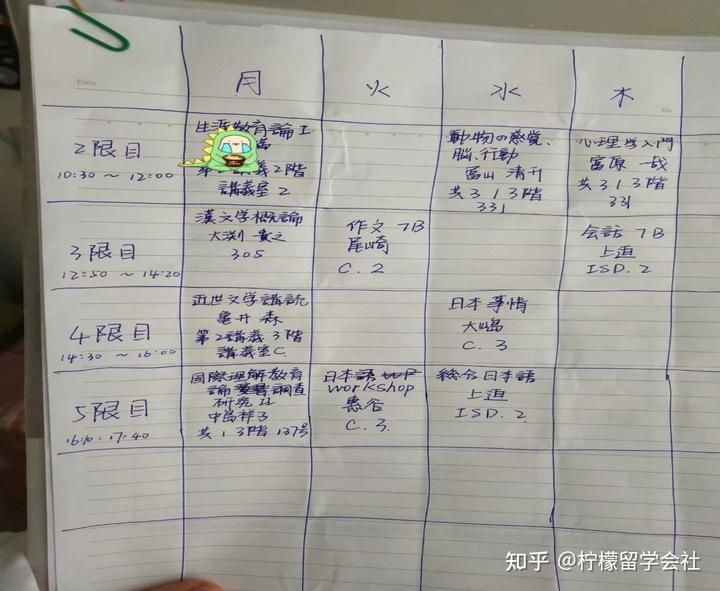 Date
No.
月 火 水 木
2限目
10:30 ~ 12:00
生涯教育論I
講義室 2
動物の感覚、
脳、行動
富山 清升
共3 1 3階
331
心理学入門
富原 一哉
共3 1 3階
331
3限目
12:50 ~ 14:20
漢文学概論
大渕 貴之
305
作文 7B
尾崎
C. 2
会話 7B
上迫
ISD. 2
4限目
14:30 ~ 16:00
近世文学講読
亀井 森
第2講義 3階
講義室C
日本事情
大嶋
C. 3
5限目
16:10 ~ 17:40
国際理解教育
論 調査
研究II
共1 3階 137号
日本語
Workshop
C. 3.
総合日本語
上迫
ISD. 2
知乎 @柠檬留学会社